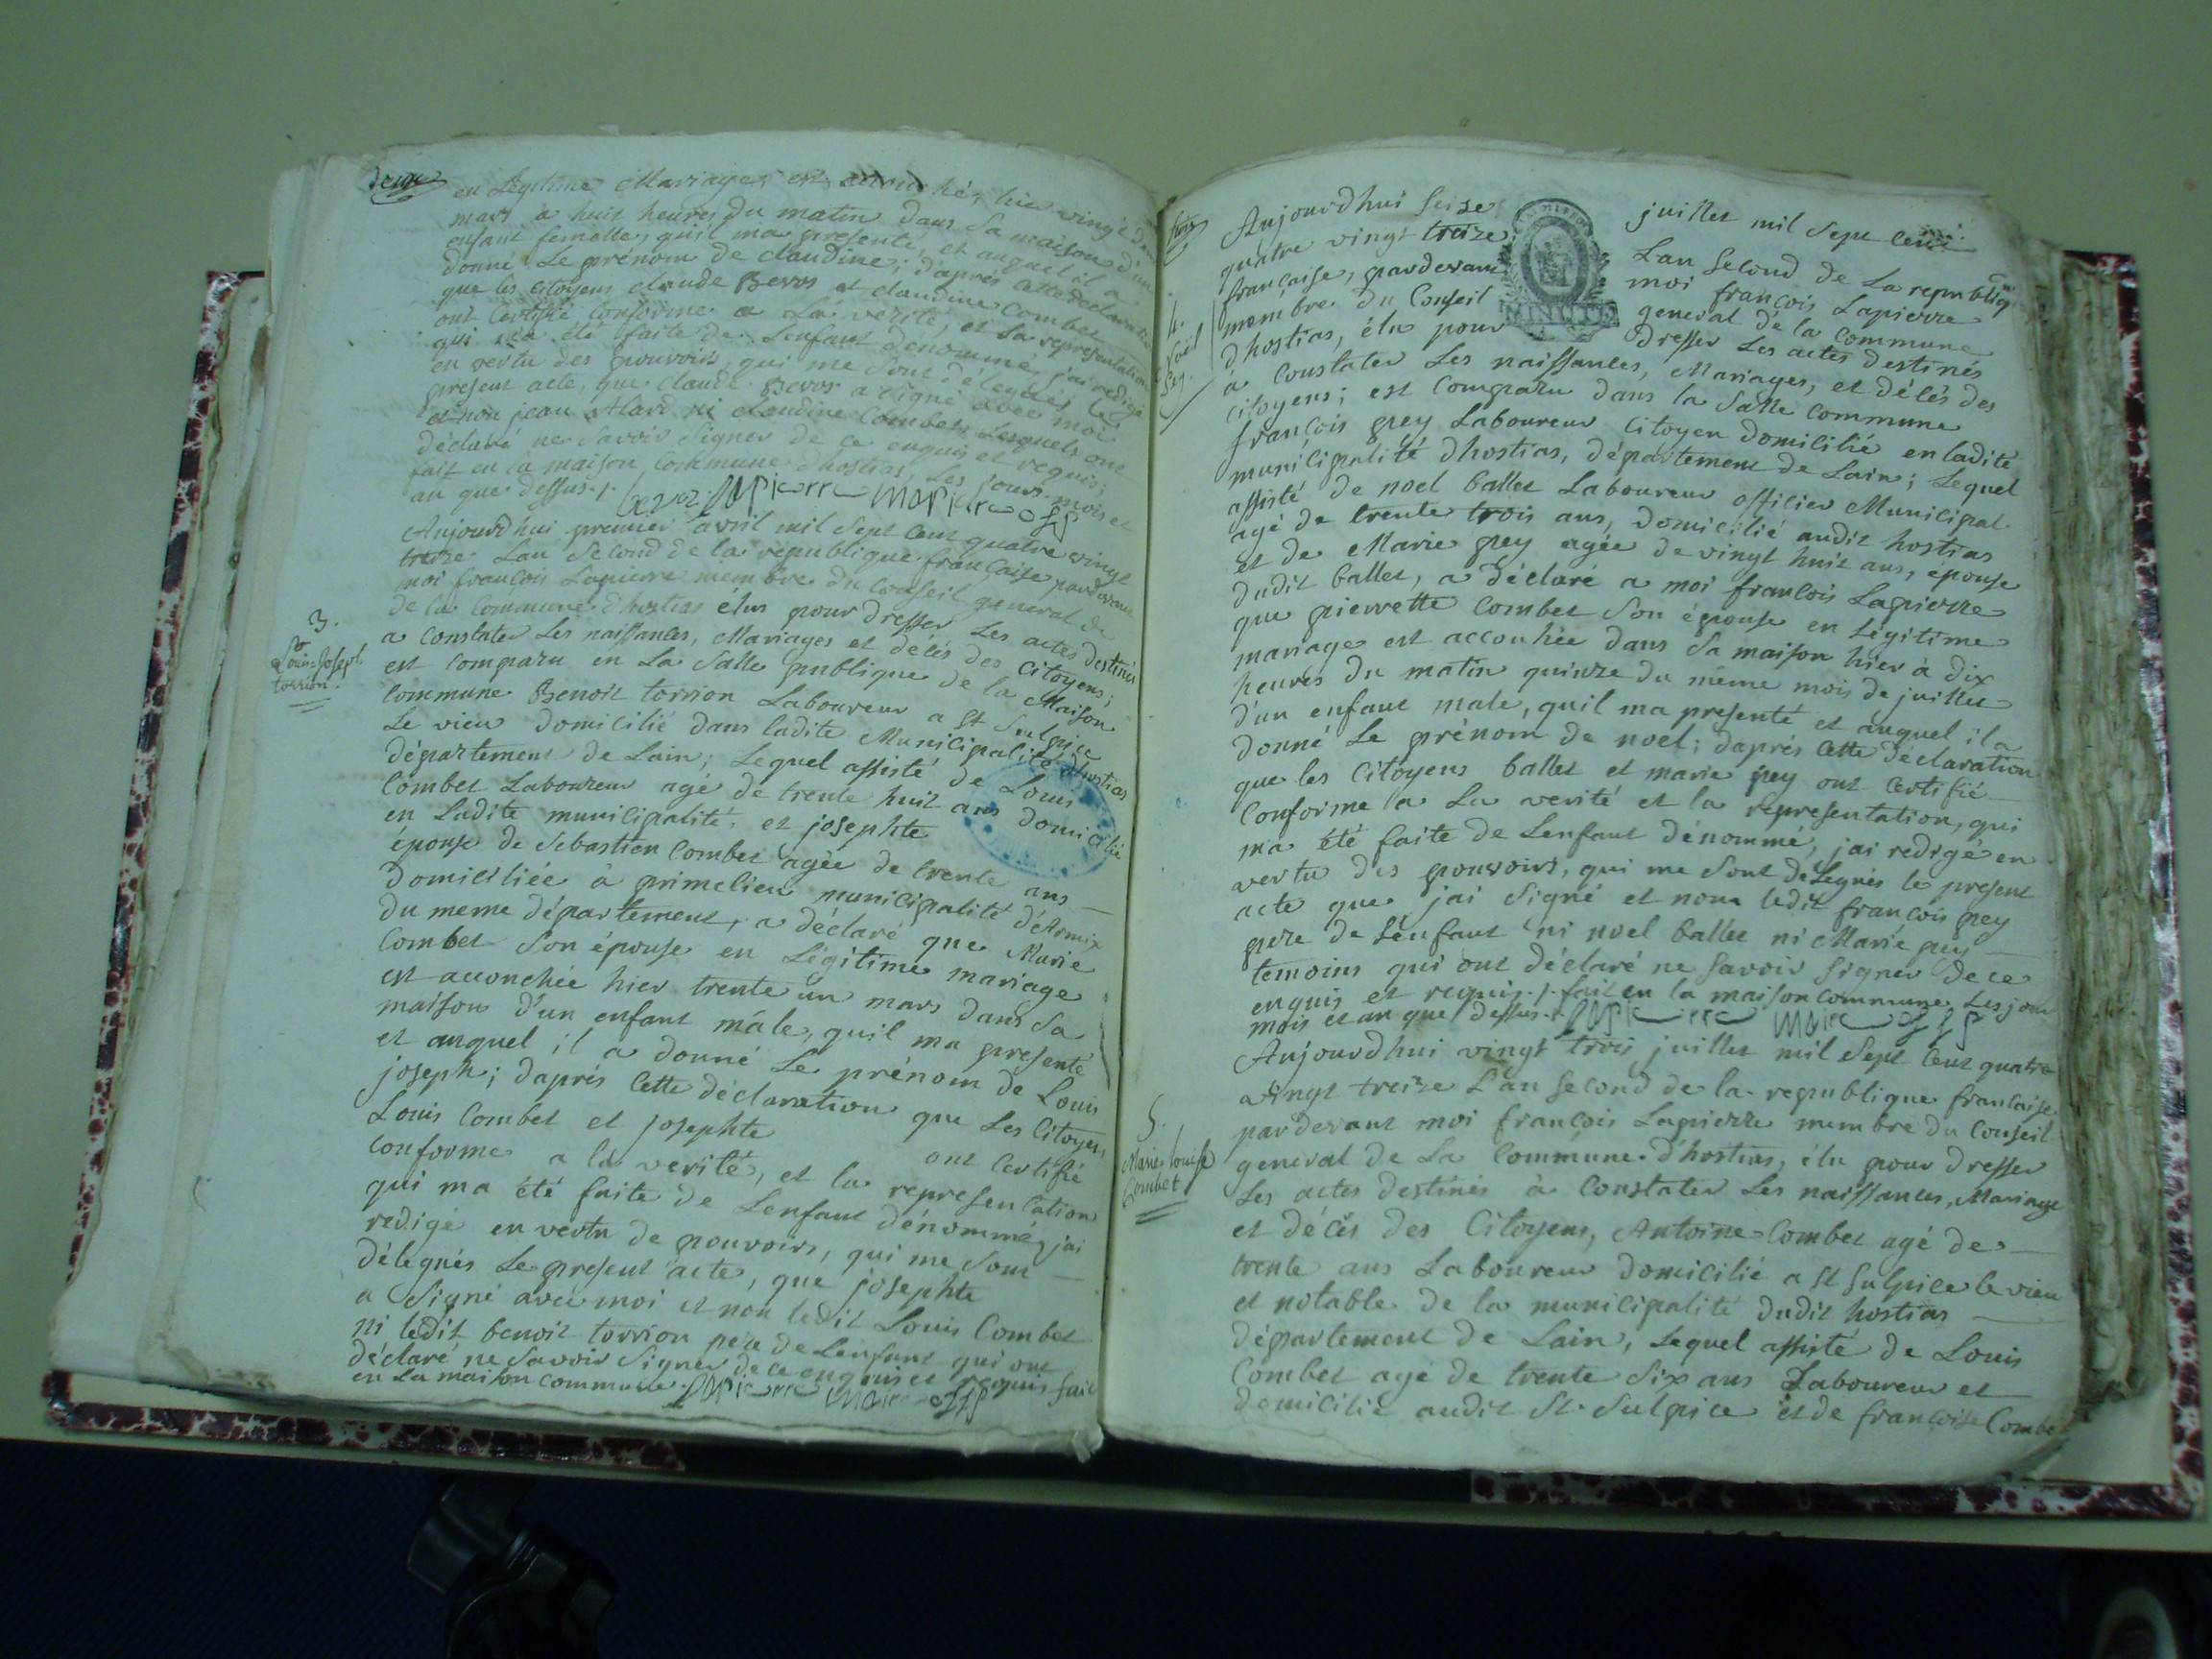 deux
en Légitime Mariage, est accouchée, hier vingt
mars a huit heures du matin dans sa maison d'un
enfant femelle, quil ma presenté, et auquel il a
donné Le prénom de claudine; daprés Cette declaration
que les Citoyens claude Beros et claudine Combet
ont Certifié Conforme a La verité, et La representation
qui m'a été faite de Lenfant denommé, jai redigé
en vertu des pouvoirs, qui me sont délegués, Le
present acte, que claude Beros a signé avec moi
et non jean Alard ni claudine Combet Lesquels ont
déclaré ne savoir signer de ce enquis et requis;
fait en la maison Commune dhostias, Les jours mois et
an que dessus./. Lapierre off p
Aujourdhui premier avril mil sept Cent quatre vingt
treize Lan second de la republique francaise pardevant
moi françois Lapierre membre du Conseil general de
de la Commune d'hostias élus pour dresser Les actes destinés
a Constater Les naissances, Mariages et décés des Citoyens;
3.
Louis Joseph
torrion.
est comparu en La salle publique de la Maison
Commune Benoit torrion Laboureur a St Sulpice
Le vieu domicilié dans ladite Municipalité dhostias
département de Lain; Lequel assisté de Louis
Combet Laboureur agé de trente huit ans domicilié
en Ladite municipalité, et josephte
épouse de sébastien Combet agée de trente ans
domiciliée à primelieu municipalité d'Armix
du meme département, a déclaré que Marie
Combet son épouse en Légitime mariage
est accouchée hier trente un mars dans sa
maison d'un enfant mâle, quil ma presenté
et auquel il a donné Le prénom de Louis
joseph; daprés Cette déclaration que Les Citoyens
Louis Combet et josephte ont Certifié
conforme a la verité, et la representation
qui ma été faite de Lenfant dénommé, jai
redigé en vertu de pouvoirs, qui me sont
délegués Le present acte, que josephte
a signé avec moi et non ledit Louis Combet
ni ledit benoit torrion pere de Lenfant qui ont
déclaré ne savoir signer de ce enquis et requis fait
en La maison commune. Lapierre maire off p
Aujourdhui seize juillet mil sept Cent
quatre vingt treize Lan second de La republiq
francaise, pardevant moi françois Lapierre
membre du Conseil general de la commune
dhostias, élu pour dresser Les actes destinés
4.
Noël
pey.
MINUTE
à Constater Les naissances, Mariages, et décés des
citoyens; est Comparu dans la salle Commune
françois pey Laboureur Citoyen domicilié en ladite
municipalité dhostias, département de Lain; Lequel
assisté de noel ballet Laboureur officier Municipal
agé de trente trois ans, domicilié audit hostias
et de Marie pey agée de vingt huit ans, épouse
dudit ballet, a déclaré a moi françois Lapierre
que pierrette Combet son épouse en Légitime
mariage est accouhée dans sa maison hier à dix
heures du matin quinze du même mois de juillet
d'un enfant male, quil ma presenté et auquel il a
donné Le prénom de noel; daprés Cette déclaration
que les Citoyens ballet et marie pey ont Certifié
Conforme a La verité et la representation, qui
m'a été faite de Lenfant dénommé, jai redigé en
vertu des pouvoirs, qui me sont délegués le present
acte que jai signé et non ledit françois pey
pere de Lenfant ni noel ballet ni Marie pey
temoins qui ont déclaré ne savoir signer de ce
enquis et requis./. fait en la maison commune Les jour
mois et an que dessus./. Lapierre maire off p
Aujourdhui vingt trois juillet mil sept Cent quatre
vingt treize L'an second de la republique francaise
pardevant moi françois Lapierre membre du Conseil
general de La Commune d'hostias, élu pour dresser
5.
Marie louise
Combet
Les actes destinés à Constater Les naissances, Mariage
et décés des Citoyens, Antoine Combet agé de
trente ans Laboureur domicilié a St Sulpice le vieu
et notable de la municipalité dudit hostias
département de Lain, Lequel assisté de Louis
Combet agé de trente six ans Laboureur et
domicilié audit St Sulpice et de françoise Combe